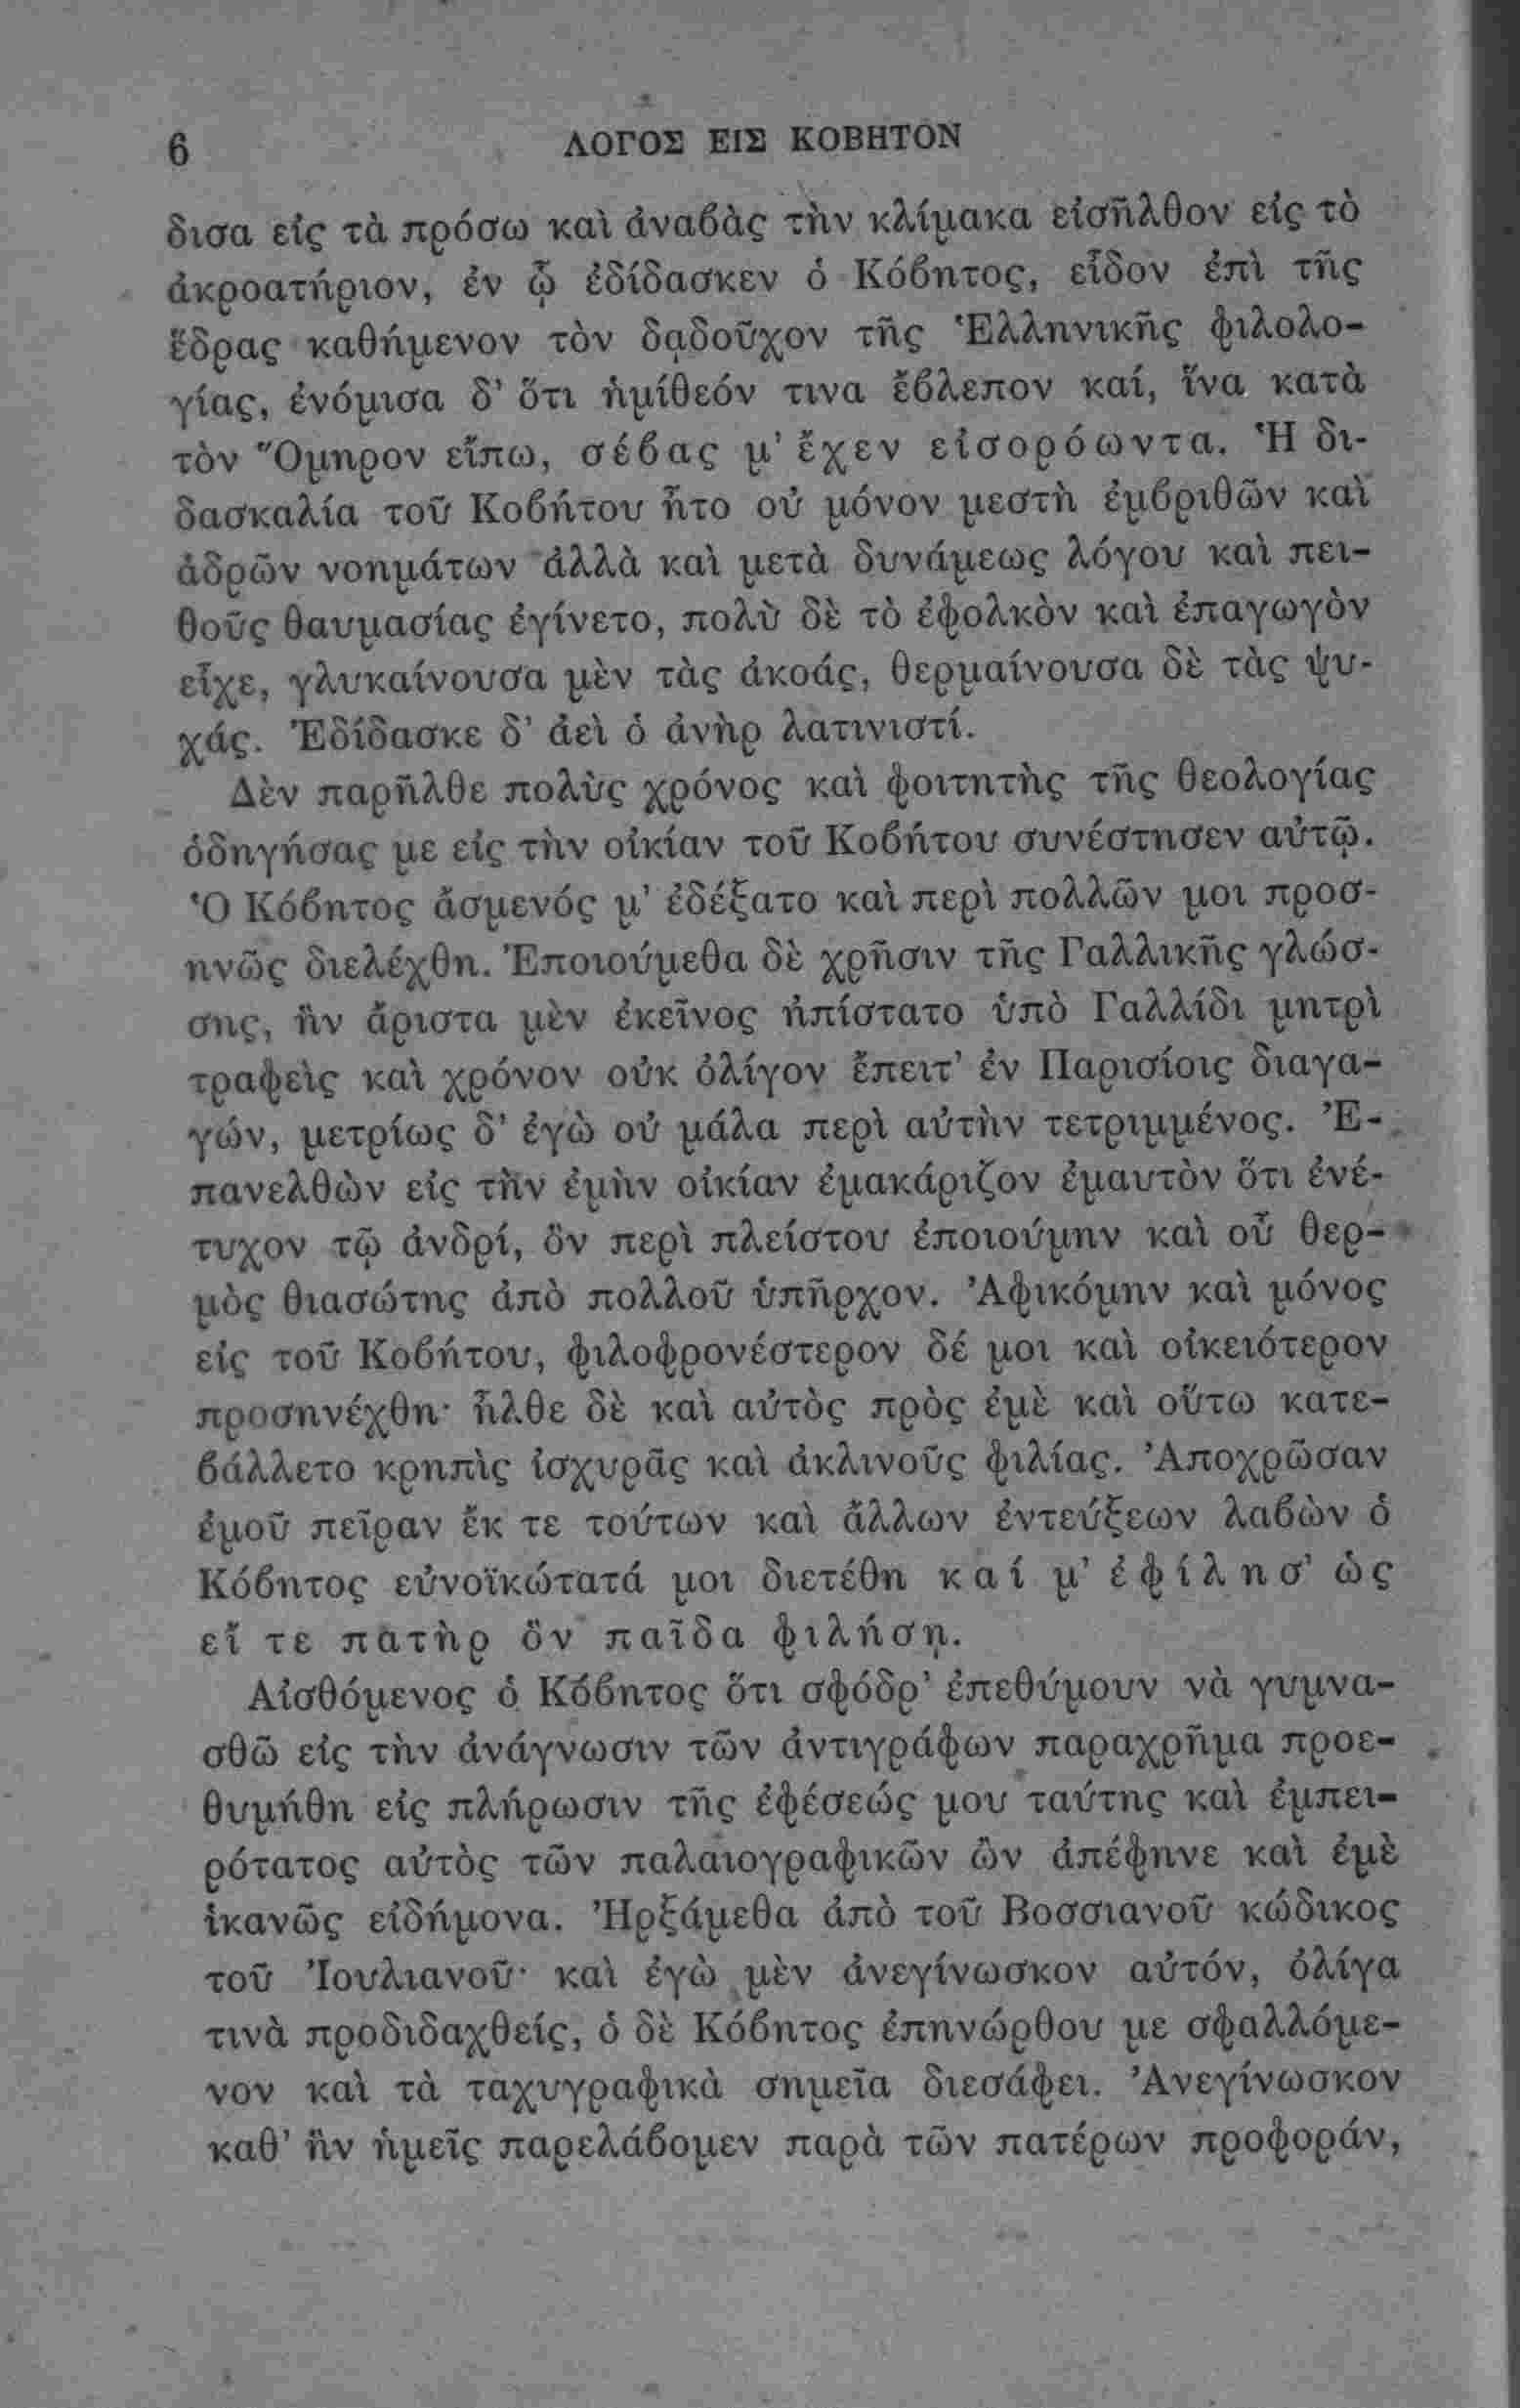 6 ΛΟΓΟΣ ΕΙΣ ΚΟΒΗΤΟΝ
δισα εἰς τὰ πρόσω καὶ ἀναβὰς τὴν κλίμακα εἰσῆλθον εἰς τὸ
ἀκροατήριον, ἐν ᾧ ἐδίδασκεν ὁ Κόβητος, εἶδον ἐπὶ τῆς
ἕδρας καθήμενον τὸν δᾳδοῦχον τῆς Ἑλληνικῆς φιλολο-
γίας, ἐνόμισα δ’ ὅτι ἡμίθεόν τινα ἔβλεπον καί, ἵνα κατὰ
τὸν Ὅμηρον εἴπω, σέβας μ’ ἔχεν εἰσορόωντα. Ἡ δι-
δασκαλία τοῦ Κοβήτου ἦτο οὐ μόνον μεστὴ ἐμβριθῶν καὶ
ἁδρῶν νοημάτων ἀλλὰ καὶ μετὰ δυνάμεως λόγου καὶ πει-
θοῦς θαυμασίας ἐγίνετο, πολὺ δὲ τὸ ἐφολκὸν καὶ ἐπαγωγὸν
εἶχε, γλυκαίνουσα μὲν τὰς ἀκοάς, θερμαίνουσα δὲ τὰς ψυ-
χάς. Ἐδίδασκε δ’ ἀεὶ ὁ ἀνὴρ λατινιστί.
Δὲν παρῆλθε πολὺς χρόνος καὶ φοιτητὴς τῆς θεολογίας
ὁδηγήσας με εἰς τὴν οἰκίαν τοῦ Κοβήτου συνέστησεν αὐτῷ.
Ὁ Κόβητος ἄσμενός μ’ ἐδέξατο καὶ περὶ πολλῶν μοι προσ-
ηνῶς διελέχθη. Ἐποιούμεθα δὲ χρῆσιν τῆς Γαλλικῆς γλώσ-
σης, ἣν ἄριστα μὲν ἐκεῖνος ἠπίστατο ὑπὸ Γαλλίδι μητρὶ
τραφεὶς καὶ χρόνον οὐκ ὀλίγον ἔπειτ’ ἐν Παρισίοις διαγα-
γών, μετρίως δ’ ἐγὼ οὐ μάλα περὶ αὐτὴν τετριμμένος. Ἐ-
πανελθὼν εἰς τὴν ἐμὴν οἰκίαν ἐμακάριζον ἐμαυτὸν ὅτι ἐνέ-
τυχον τῷ ἀνδρί, ὃν περὶ πλείστου ἐποιούμην καὶ οὗ θερ-
μὸς θιασώτης ἀπὸ πολλοῦ ὑπῆρχον. Ἀφικόμην καὶ μόνος
εἰς τοῦ Κοβήτου, φιλοφρονέστερον δέ μοι καὶ οἰκειότερον
προσηνέχθη· ἦλθε δὲ καὶ αὐτὸς πρὸς ἐμὲ καὶ οὕτω κατε-
βάλλετο κρηπὶς ἰσχυρᾶς καὶ ἀκλινοῦς φιλίας. Ἀποχρῶσαν
ἐμοῦ πεῖραν ἔκ τε τούτων καὶ ἄλλων ἐντεύξεων λαβὼν ὁ
Κόβητος εὐνοϊκώτατά μοι διετέθη καί μ’ ἐφίλησ’ ὡς
εἴ τε πατὴρ ὃν παῖδα φιλήσῃ.
Αἰσθόμενος ὁ Κόβητος ὅτι σφόδρ’ ἐπεθύμουν νὰ γυμνα-
σθῶ εἰς τὴν ἀνάγνωσιν τῶν ἀντιγράφων παραχρῆμα προε-
θυμήθη εἰς πλήρωσιν τῆς ἐφέσεώς μου ταύτης καὶ ἐμπει-
ρότατος αὐτὸς τῶν παλαιογραφικῶν ὢν ἀπέφηνε καὶ ἐμὲ
ἱκανῶς εἰδήμονα. Ἠρξάμεθα ἀπὸ τοῦ Βοσσιανοῦ κώδικος
τοῦ Ἰουλιανοῦ· καὶ ἐγὼ μὲν ἀνεγίνωσκον αὐτόν, ὀλίγα
τινὰ προδιδαχθείς, ὁ δὲ Κόβητος ἐπηνώρθου με σφαλλόμε-
νον καὶ τὰ ταχυγραφικὰ σημεῖα διεσάφει. Ἀνεγίνωσκον
καθ’ ἣν ἡμεῖς παρελάβομεν παρὰ τῶν πατέρων προφοράν,